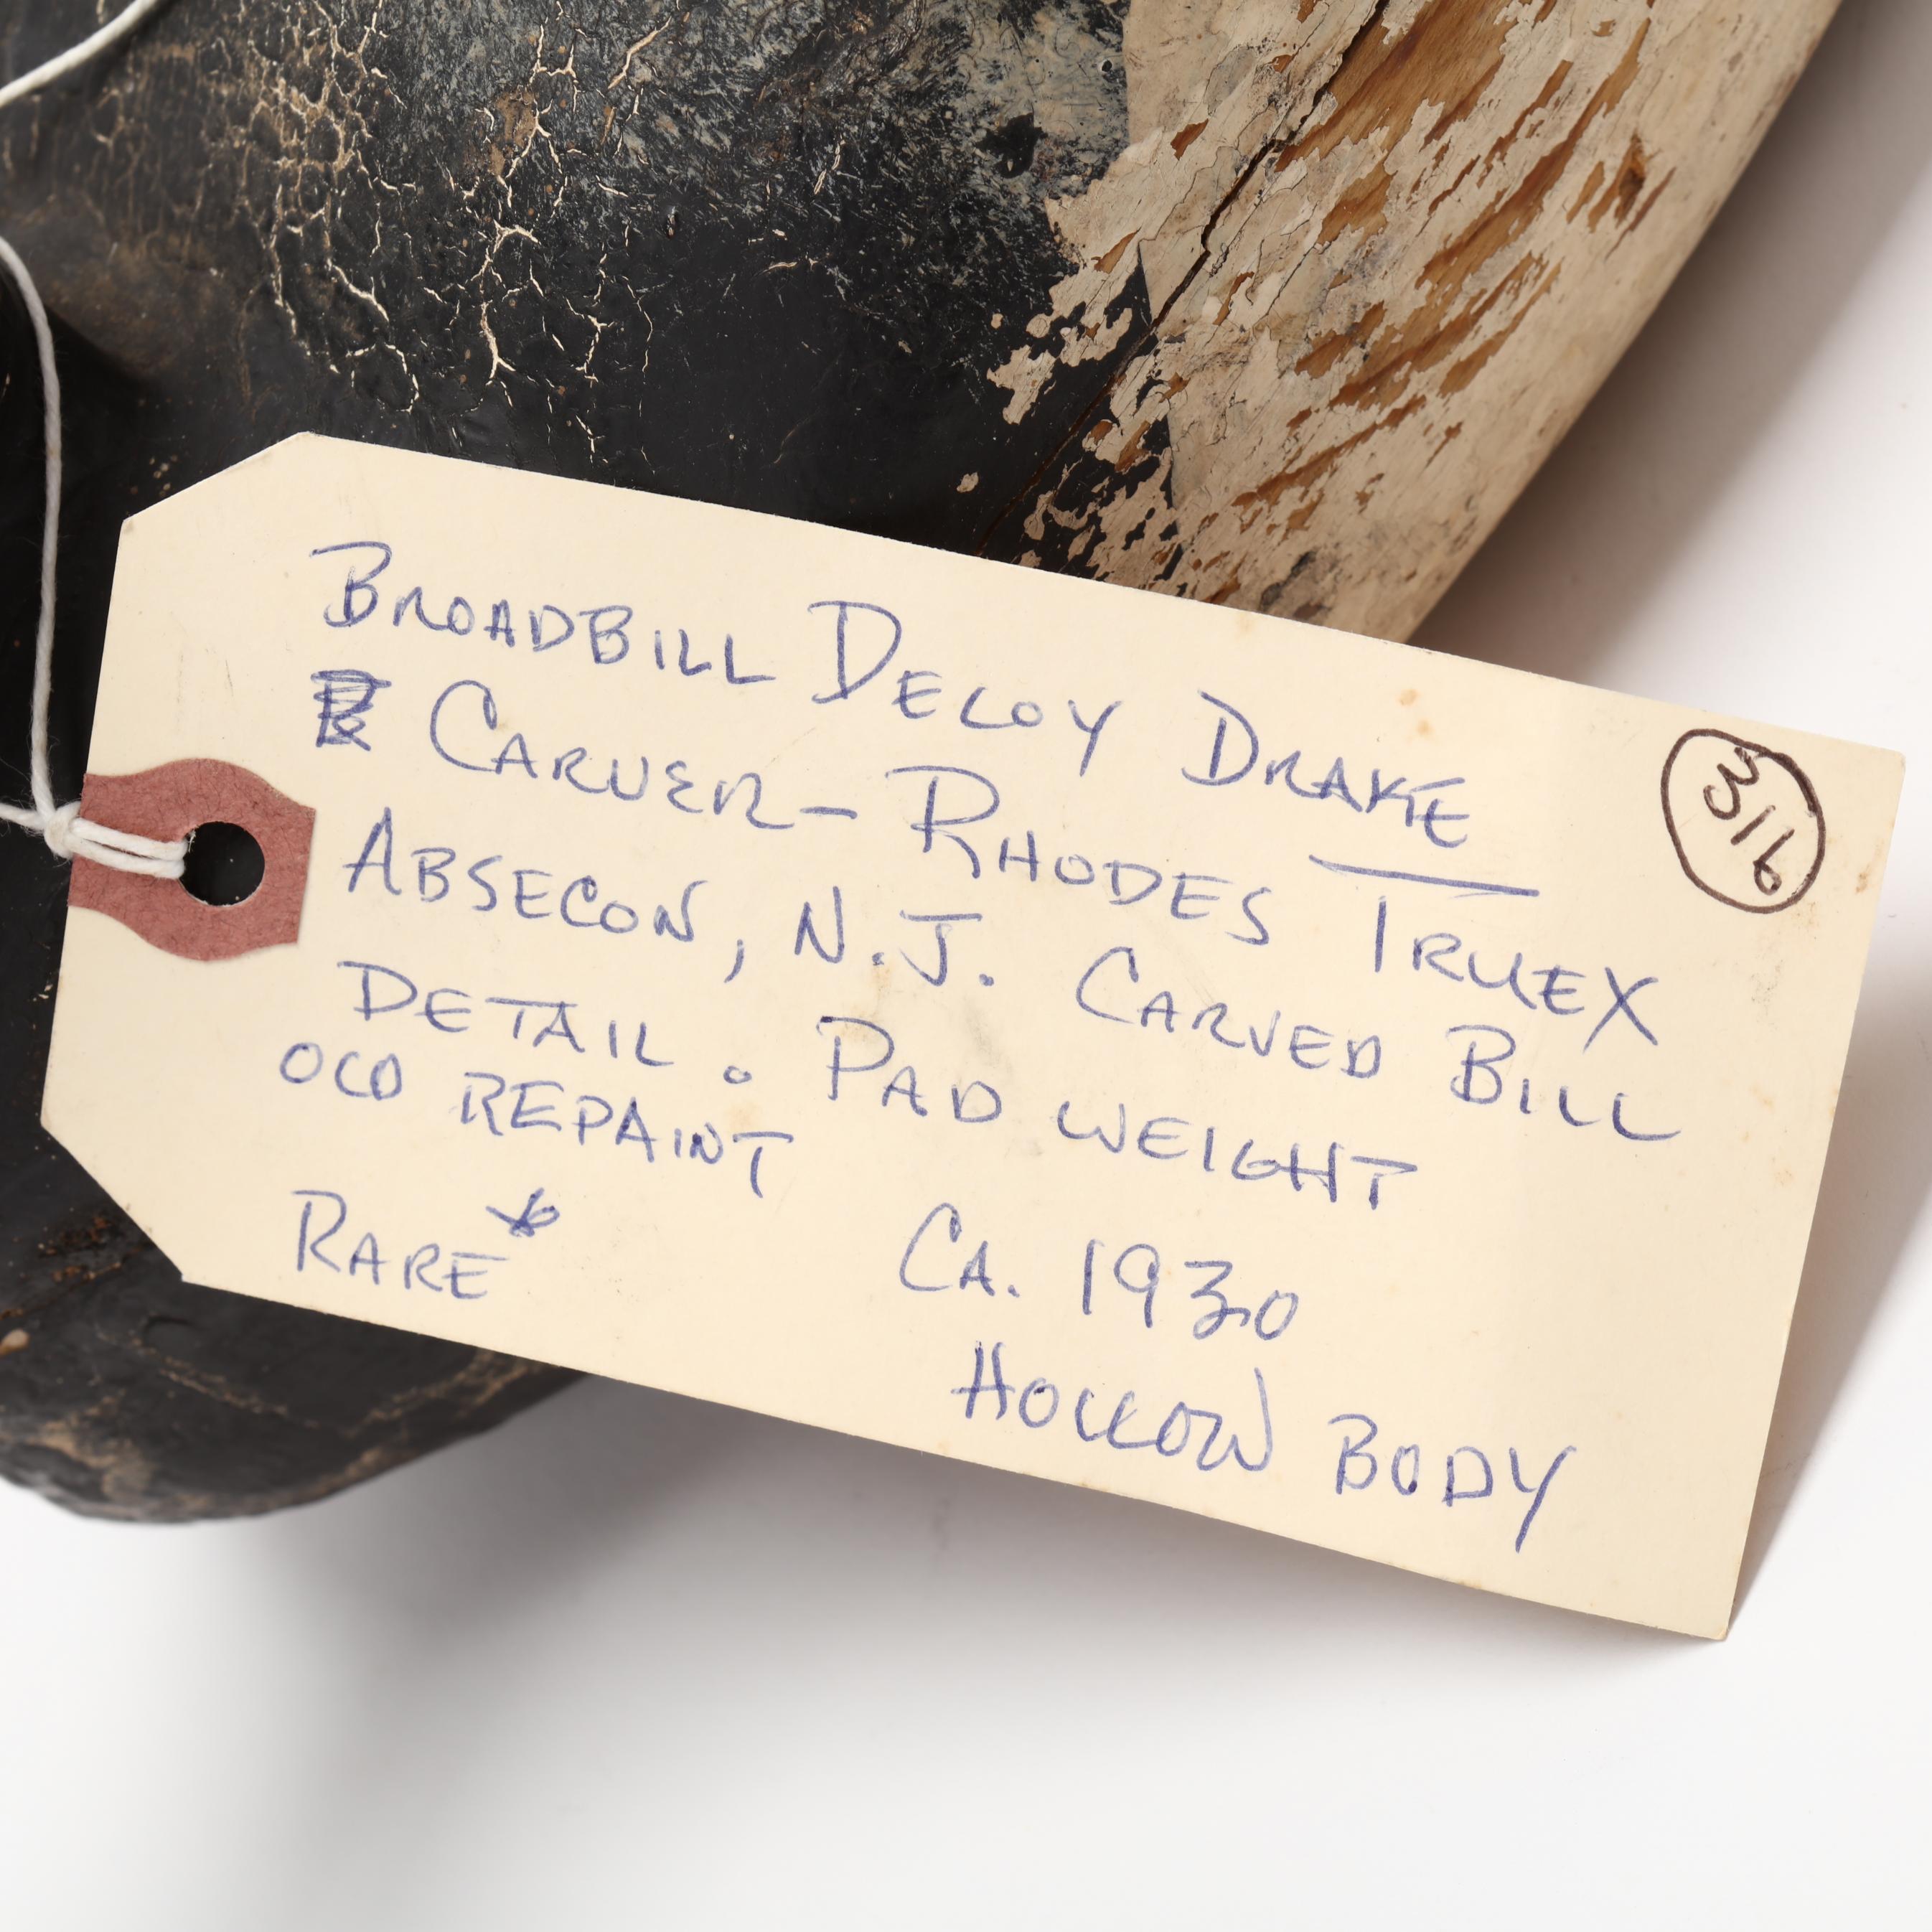 BROADBILL DECOY DRAKE
CARVER - RHODES TRUEX
ABSECON, N.J. CARVED BILL
DETAIL. PAD WEIGHT
OLD REPAINT
RARE*
CA. 1930
HOLLOW BODY
316